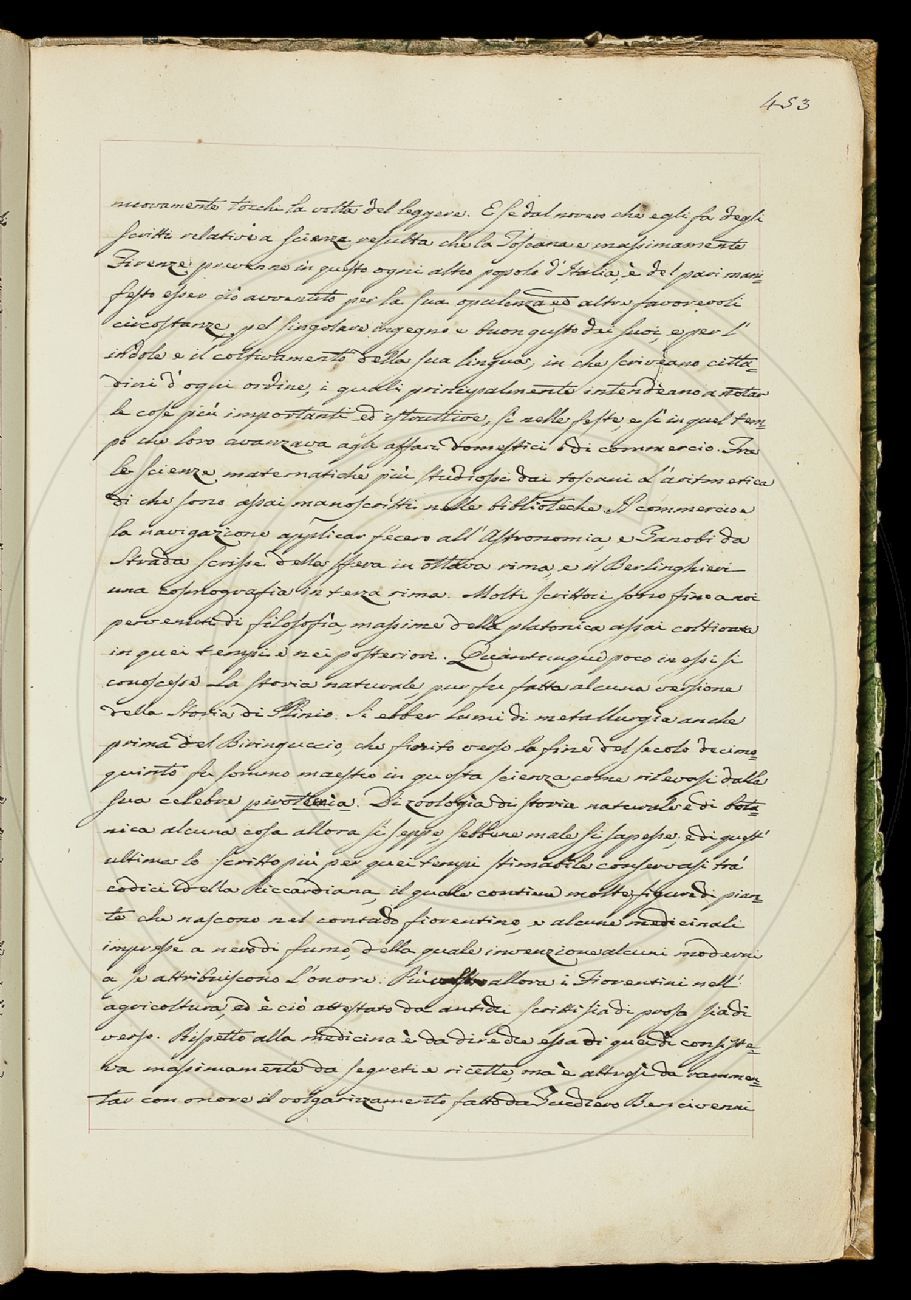 453
nuovamente tocche la volta del leggere. E se dal novero che egli fa degli
scritti relativi a scienze resulta che la Toscana e massimamente
Firenze prevenne in questo ogni altro popolo d'Italia, è del pari mani=
festo esser ciò avvenuto per la sua opulenza ed altre favorevoli
circostanze, pel singolare ingegno e buon gusto dei suoi, e per l'
indole e il coltivamento della sua lingua, in che scriveano citta=
dini d'ogni ordine, i quali principalmente intendeano a notar
le cose più importanti ed istruttive, sì nelle feste, e sì in quel tem=
po che loro avanzava agli affari domestici o di commercio. Fra
le scienze matematiche più studiossi dai toscani l'aritmetica
di che sono assai manoscritti nelle biblioteche. Il commercio e
la navigazione applicar fecero all'Astronomia, e Zanobi da
Strada scrisse della sfera in ottava rima, e il Berlinghieri
una cosmografia in terza rima. Molti scrittori sono fino a noi
pervenuti di filosofia, massime della platonica assai coltivata
in quei tempi e nei posteriori. Quantunque poco in essi si
conoscesse la storia naturale, pur fu fatta alcuna versione
della Storia di Plinio. Si ebber lumi di metallurgia anche
prima del Biringuccio, che fiorito verso la fine del secolo decimo=
quinto fu sommo maestro in questa scienza come rilevasi dalla
sua celebre pirotecnia. Di zoologia di storia naturale e di bota=
nica alcuna cosa allora si seppe, sebbene male si sapesse, e di quest'
ultima lo scritto più per quei tempi stimabile conservasi trà
codici della Riccardiana, il quale contiene molte figure di pian=
te che nascono nel contado fiorentino, e alcune medicinali
impresse a nero di fumo, della quale invenzione alcuni moderni
a se attribuiscono l'onore. Più allora i Fiorentini nell'
agricoltura, ed è ciò attestato da antichi scritti sia di prosa sia di
verso. Rispetto alla medicina è da dire che essa di quei dì consiste=
va massimamente da segreti e ricette, ma è altresì da rammen=
tar con onore il volgarizzamento fatto da Zucchero Bencivenni